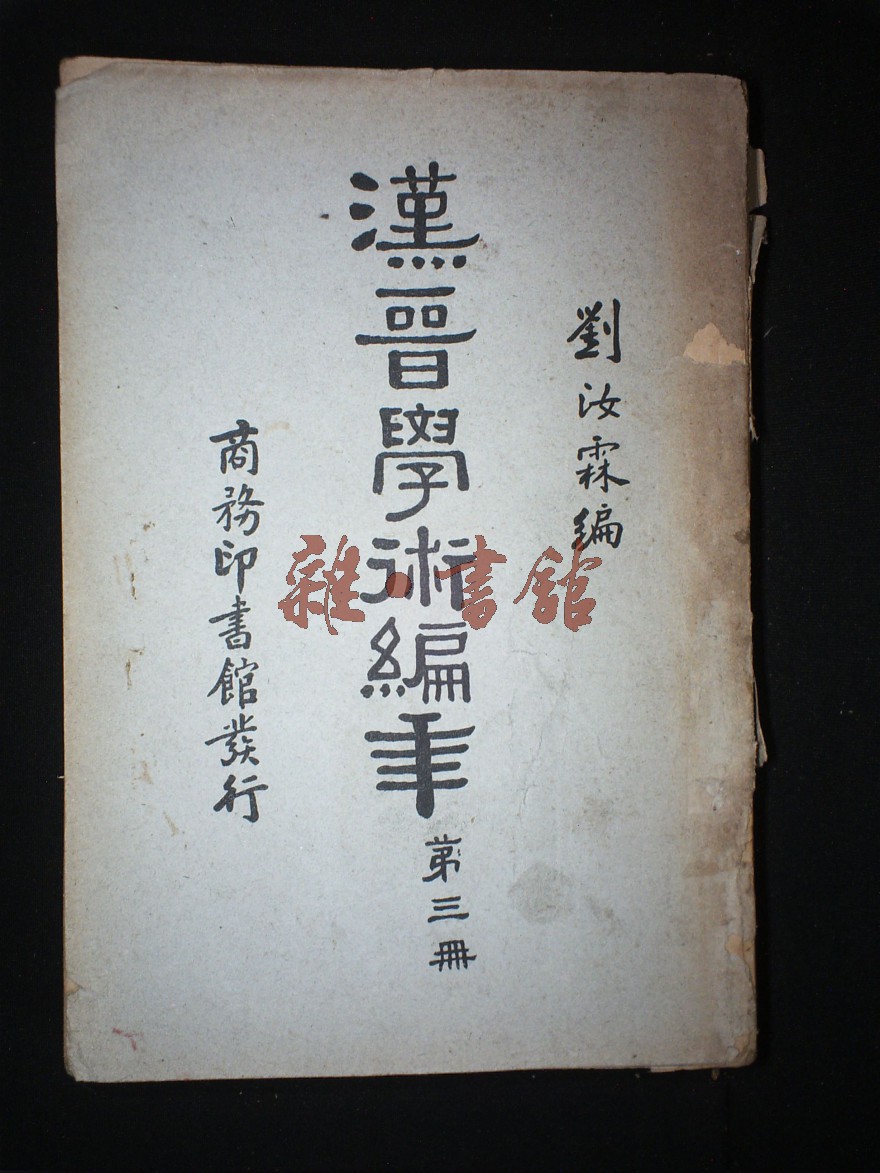 劉汝霖編
漢晉學術編年
第三冊
商務印書館發行
雜·書館